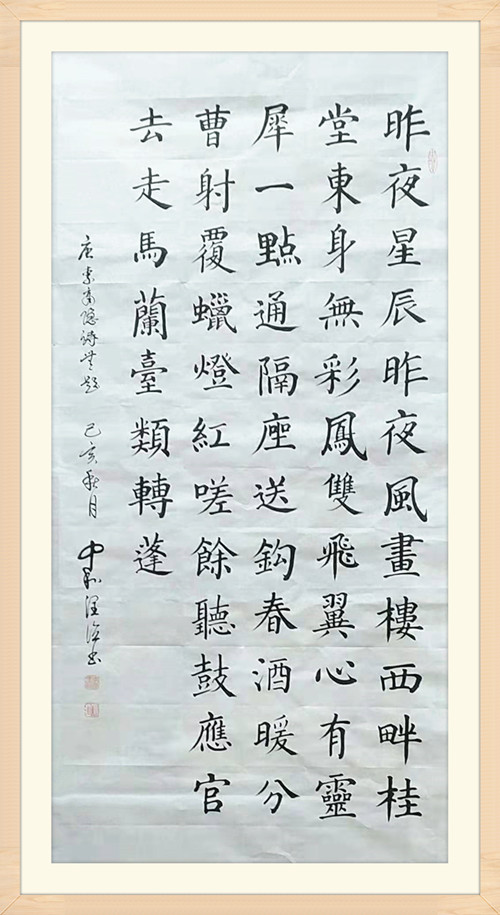 昨夜星辰昨夜風畫樓西畔桂
堂東身無彩鳳雙飛翼心有靈
犀一點通隔座送鈎春酒暖分
曹射覆蠟燈紅嗟餘聽鼓應官
去走馬蘭臺類轉蓬
唐李商隱詩無題 己亥秋月 書